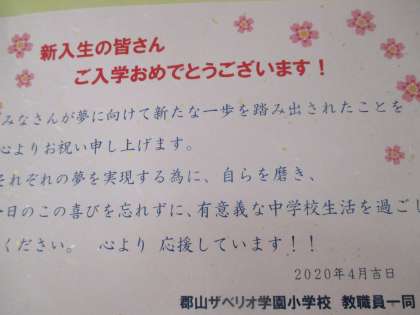 新入生の皆さん
ご入学おめでとうございます！
みなさんが夢に向けて新たな一歩を踏み出されたことを
心よりお祝い申し上げます。
それぞれの夢を実現する為に、自らを磨き、
日のこの喜びを忘れずに、有意義な中学校生活を過ごし
ください。　心より 応援しています！！
2020年4月吉日
郡山ザベリオ学園小学校　教職員一同